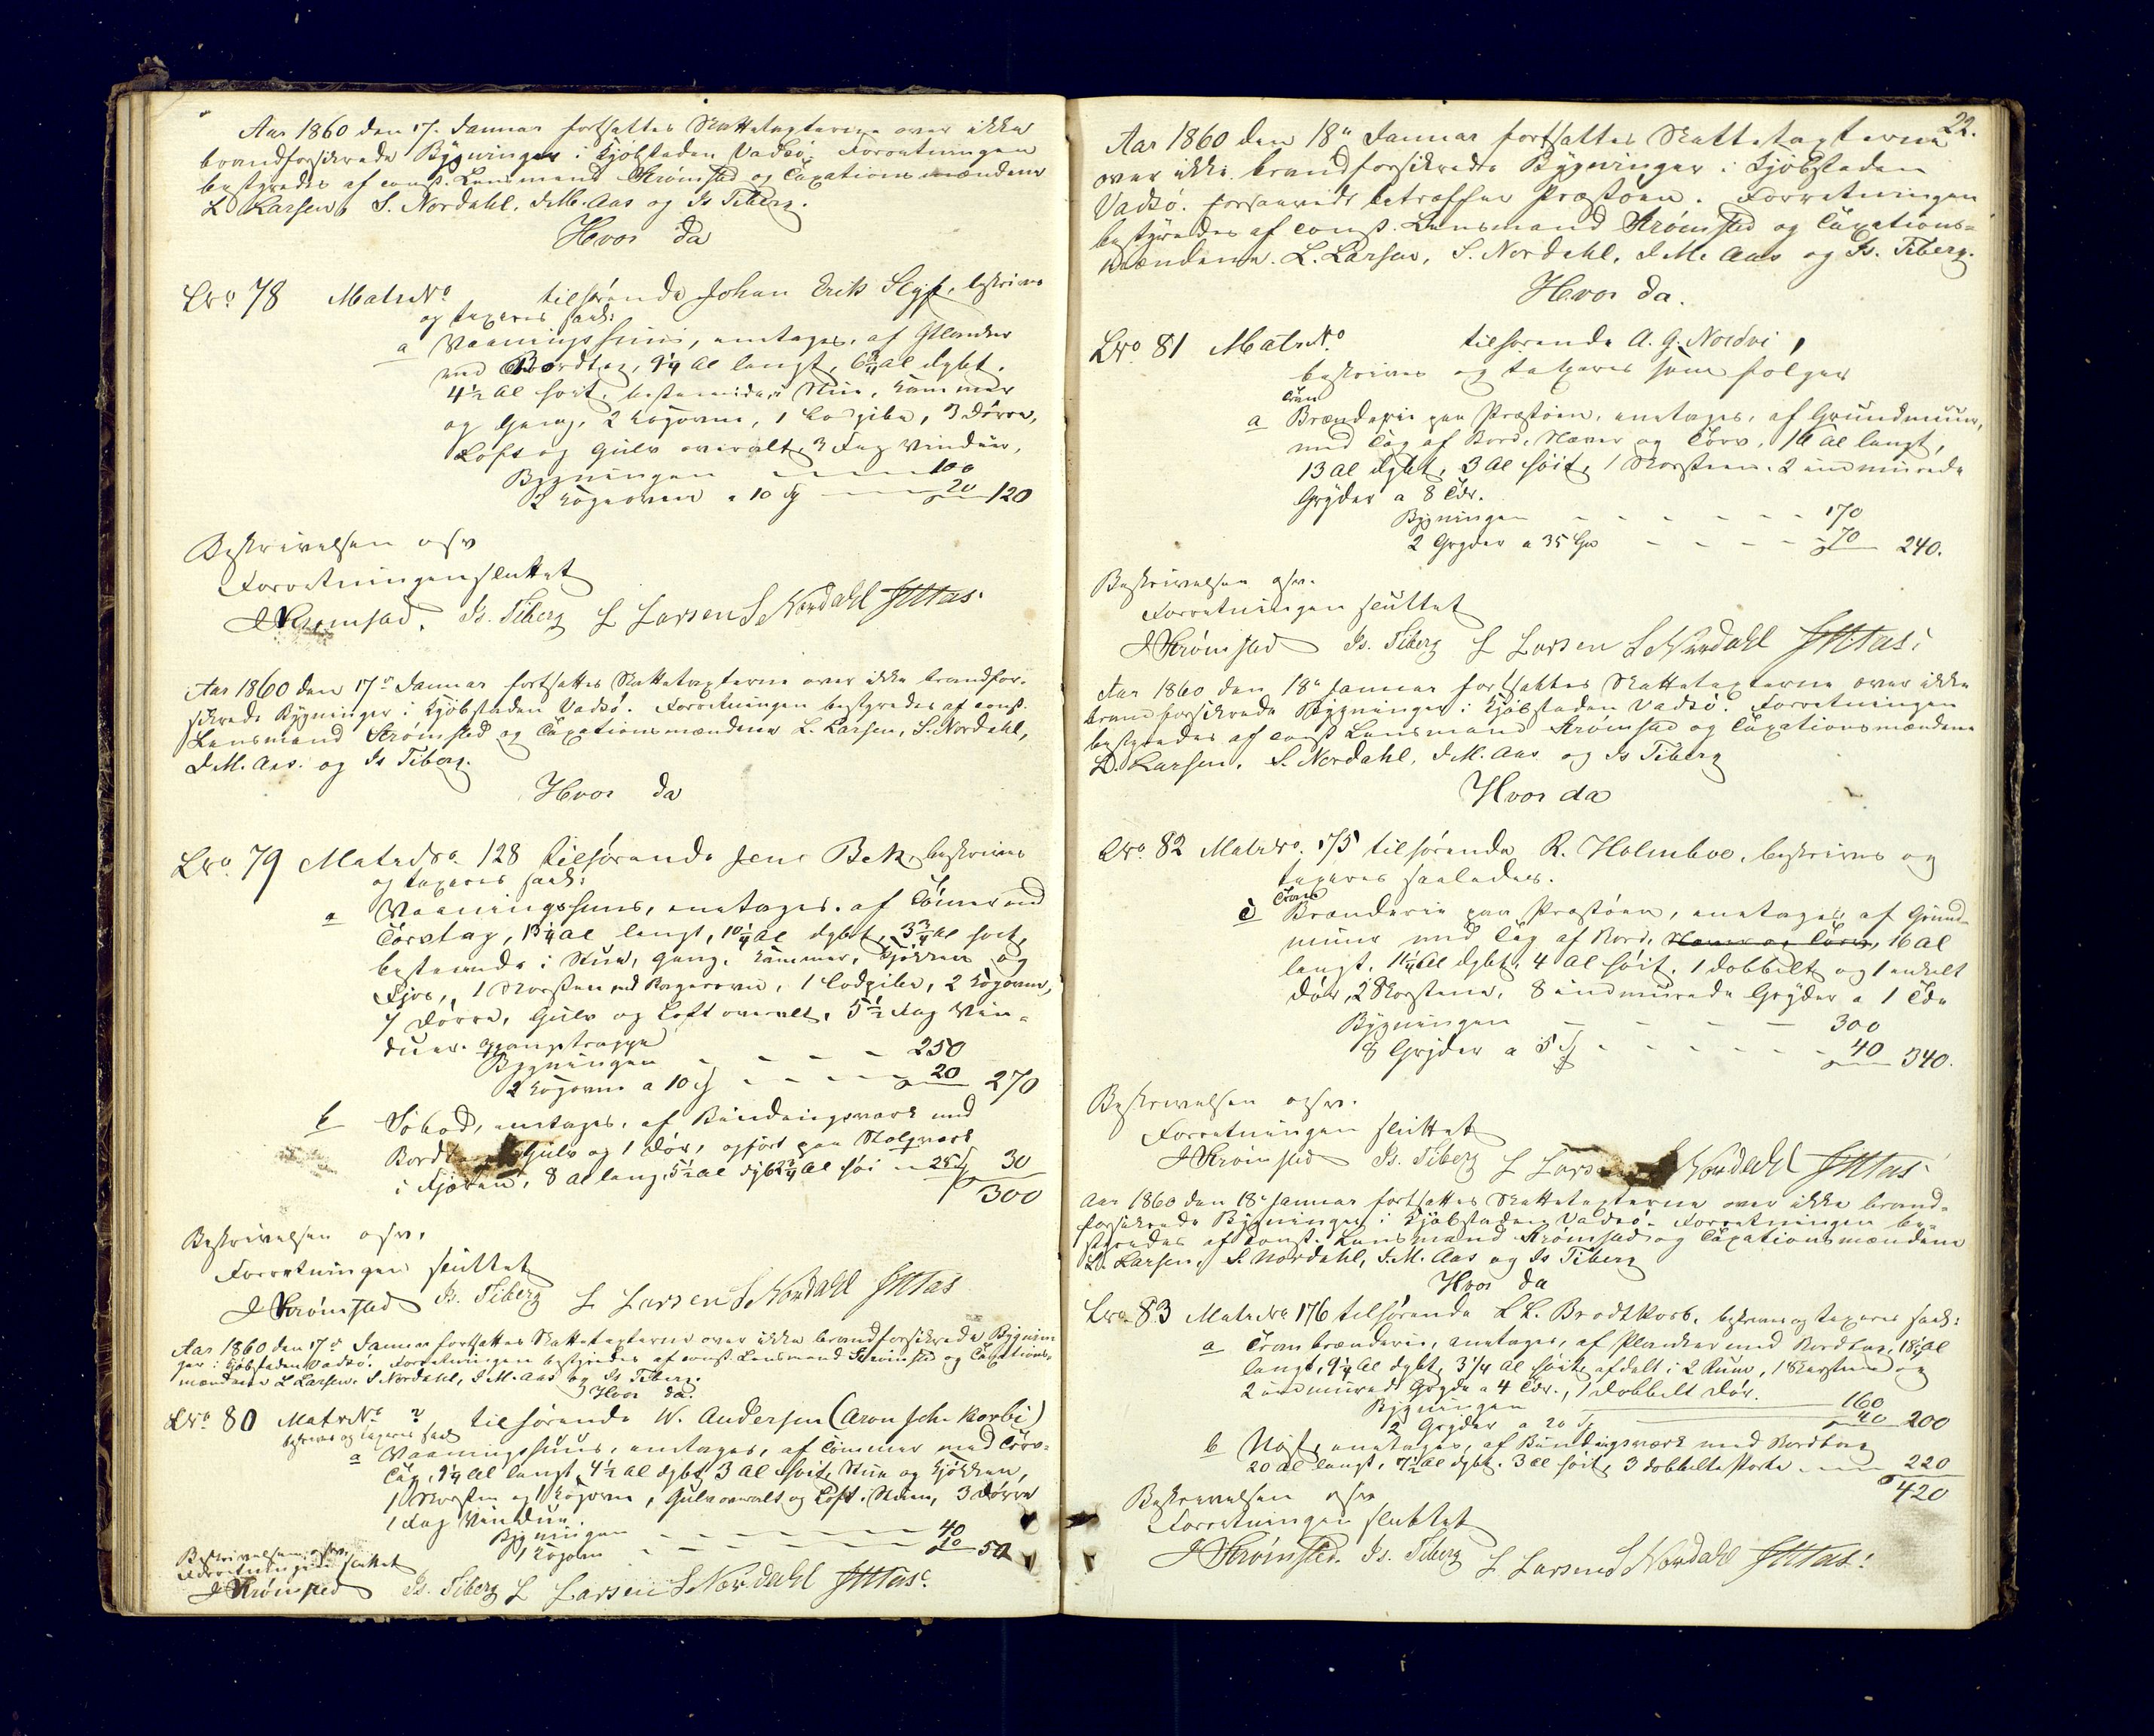 Aar 1860 den 17. Januar fortsattes Skattetaxterne over ikke
brandforsikrede Bygninger i Kjøbstaden Vadsø. Forretningen
bestyredes af const. Lensmand Strømsted og Taxationsmændene
L Larsen, S. Nordahl, J.M. Aas og Is Tiberg.
Hvor da
Lro. 78 Matr. No tilhørende Johan Erik beskrives
og taxeres saal:
a Vaaningshuus, enetages, af Planker
med Bordtag, 9¼ Al langt, 6¾ Al dybt,
4½ Al høit, bestaaende i Stue, Kammer
og Gang, 2 Kogovne, 1 Lodpibe, 3 Dørre,
Loft og Gulv overalt, 3 Fag Vinduer,
Bygningen 100
2 Kogeovne a 10 20 120
Beskrivelsen osv
Forretningen sluttet
J Strømsted. Is. Tiberg L Larsen S Nordahl JMAas.
Aar 1860 den 17de Januar fortsattes Skattetaxterne over ikke brandfor-
sikrede Bygninger i Kjøbstaden Vadsø. Forretningen bestyredes af const.
Lensmand Strømsted og Taxationsmændene L. Larsen, S. Nordahl,
J.M. Aas. og Is Tiberg.
Hvor da
Lro. 79 Matr. No. 128 tilhørende Jens Bek, beskrives
og taxeres saal:
a Vaaningshuus, enetages, af Tømmer med
Törvtag, 13¼ Al langt, 10¼ Al dybt, 3¾ Al høit,
bestaaende i Stue, Gang, Kammer, Kjøkken og
Fjøs, 1 Skorsten med Bagerovn, 1 Lodpibe, 2 Kogovne,
7 Dørre, Gulv og Loft overalt, 5½ Fag Vin-
duer. Opgangstrappe
Bygningen 250
2 Kogovne a 10 20 270
b Søbod, enetages, af Bindingsværk med
Gulv og 1 Dør, opført paa Stolpværk
i Fjæren, 8 Al lang, 5½ Al dyb 2¾ Al høi 30
300
Beskrivelsen osv.
Forretningen sluttet
J Strømsted Is. Tiberg L Larsen S Nordahl JMAas
Aar 1860 den 17de Januar fortsattes Skattetaxterne over ikke brandforsikrede Bygnin
ger i Kjøbstaden Vadsø. Forretningen bestyredes af const. Lensmand Strømsted og Taxations-
mændene L Larsen, S Nordahl, J.M. Aas og Is Tiberg.
Hvor da.
Lro. 80 Matr No ? tilhørende W. Andersen (Aron Joh. Korbi)
beskrives og taxeres saal
a Vaaningshuus, enetages, af Tømmer med Törv-
tag, 9¼ Al langt, 4½ Al dybt 3 Al høit, Stue og Kjøkken,
1 Skorsten og 1 Kogovn, Gulv overalt og Loft i Stuen, 3 Dørre
1 Fag Vindue.
Bygningen 40
1 Kogovn 10 50
Beskrivelsen osv.
Forretningen sluttet
J Strømsted Is. Tiberg L Larsen S Nordahl JMAas.
22.
Aar 1860 den 18de Januar fortsattes Skattetaxterne
over ikke brandforsikrede Bygninger i Kjøbstaden
Vadsø. forsaavidt betræffer Præstøen. Forretningen
bestyredes af const. Lensmand Strømsted og Taxations-
mændene L. Larsen, S. Nordahl, J.M. Aas og Is. Tiberg.
Hvor da.
Lro. 81 Matr No. tilhørende A. G. Nordvi,
beskrives og taxeres som følger
a Tran Brænderie paa Præstøen, enetages, af Grundmuur,
med Tag af Bord, Næver og Törv, 16 Al langt,
13 Al dybt, 3 Al høit, 1 Skorsteen. 2 indmurede
Gryder a 8 Tdr.
Bygningen 170
2 Gryder a 35 70 240.
Beskrivelsen osv.
Forretningen sluttet
J Strømsted Is. Tiberg L Larsen S Nordahl JMAas.
Aar 1860 den 18de Januar fortsattes Skattetaxterne over ikke
brandforsikrede Bygninger i Kjøbstaden Vadsø. Forretningen
bestyredes af const Lensmand Strømsted og Taxationsmændene
L. Larsen, S. Nordahl, J.M. Aas og Is Tiberg
Hvor da
Lro. 82 Matr No. 175 tilhørende R. Holmboe, beskrives og
taxeres saaledes.
c Tran Brænderie paa Præstøen, enetages, af Grund-
muur med Tag af Bord, Næver og Törv, 16 Al
langt, 11¼ Al dybt, 4 Al høit. 1 dobbelt og 1 enkelt
Dør, 2 Skorstene, 8 indmurede Gryder a 1 Tde
Bygningen 300
8 Gryder a 5 40 340.
Beskrivelsen osv.
Forretningen sluttet
J Strømsted Is. Tiberg L Larsen S Nordahl JMAas.
Aar 1860 den 18de Januar fortsattes Skattetaxterne over ikke brand-
forsikrede Bygninger i Kjøbstaden Vadsø. Forretningen be-
styredes af const. Lensmand Strømsted og Taxationsmændene
L. Larsen, S. Nordahl, J.M. Aas og Is Tiberg
Hvor da
Lro. 83 Matr No 176 tilhørende Brodtkorb, beskrives og taxeres saal:
a Tranbrænderie, enetages, af Planker med Bordtag, 18¼ Al
langt, 9¼ Al dybt, 3¼ Al høit, afdelt i 2 Rum, 1 Skorsteen og
2 indmurede Gryder a 4 Tdr., 1 dobbelt Dør.
Bygningen 160
2 Gryder a 20 40 200
b Nøst, enetages, af Bindingsværk med Bordtag
20 Al langt, 7½ Al dybt. 3 Al høit, 3 dobbelte Porte 220
420
Beskrivelsen osv
Forretningen sluttet
J Strømsted. Is. Tiberg L Larsen S Nordahl JMAas.